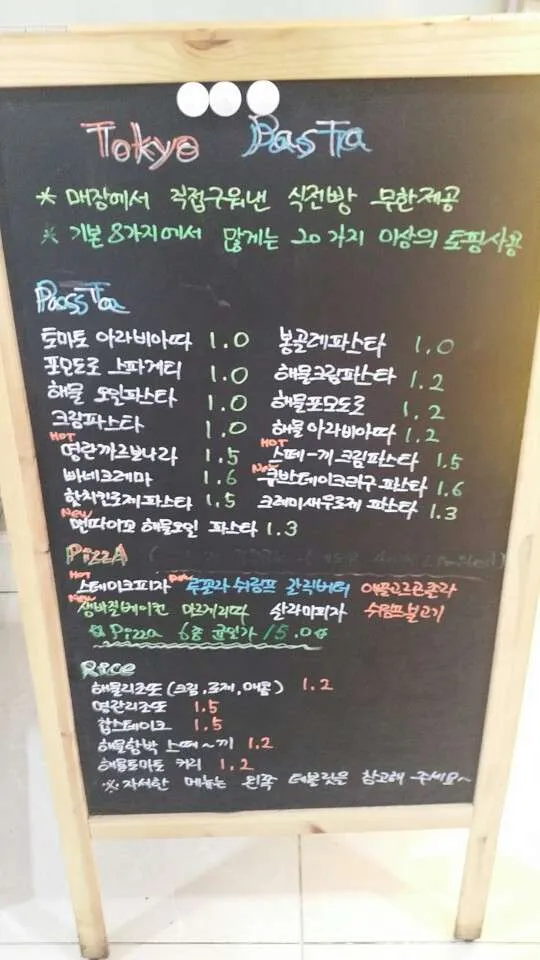 Tokyo Pasta
* 매장에서 직접구워낸 식전빵 무한제공
* 기본 8가지에서 많게는 20가지 이상의 토핑사용
Pasta
토마토 아라비아따 1.0 봉골레파스타 1.0
포모도로 스파게티 1.0 해물크림파스타 1.2
해물 오일파스타 1.0 해물포모도로 1.2
크림파스타 1.0 해물 아라비아따 1.2
HOT 명란까르보나라 1.5 HOT 스떼-끼 크림파스타 1.5
빠네크레마 1.6 New 큐브스테이크라구 파스타 1.6
핫치킨로제파스타 1.5 크레미새우로제 파스타 1.3
New 멘따이꼬 해물오일 파스타 1.3
Pizza
HOT 스테이크피자 New 루꼴라 쉬림프 갈릭버터 애플고르곤졸라
New 생바질베이컨 마르게리따 살라미피자 쉬림프불고기
Pizza 6종 균일가 15.0
Rice
해물리조또 (크림,로제,매콤) 1.2
명란리조또 1.5
찹스테이크 1.5
해물함박 스떼~끼 1.2
해물토마토 커리 1.2
※ 자세한 메뉴는 왼쪽 테블릿을 참고해 주세요~